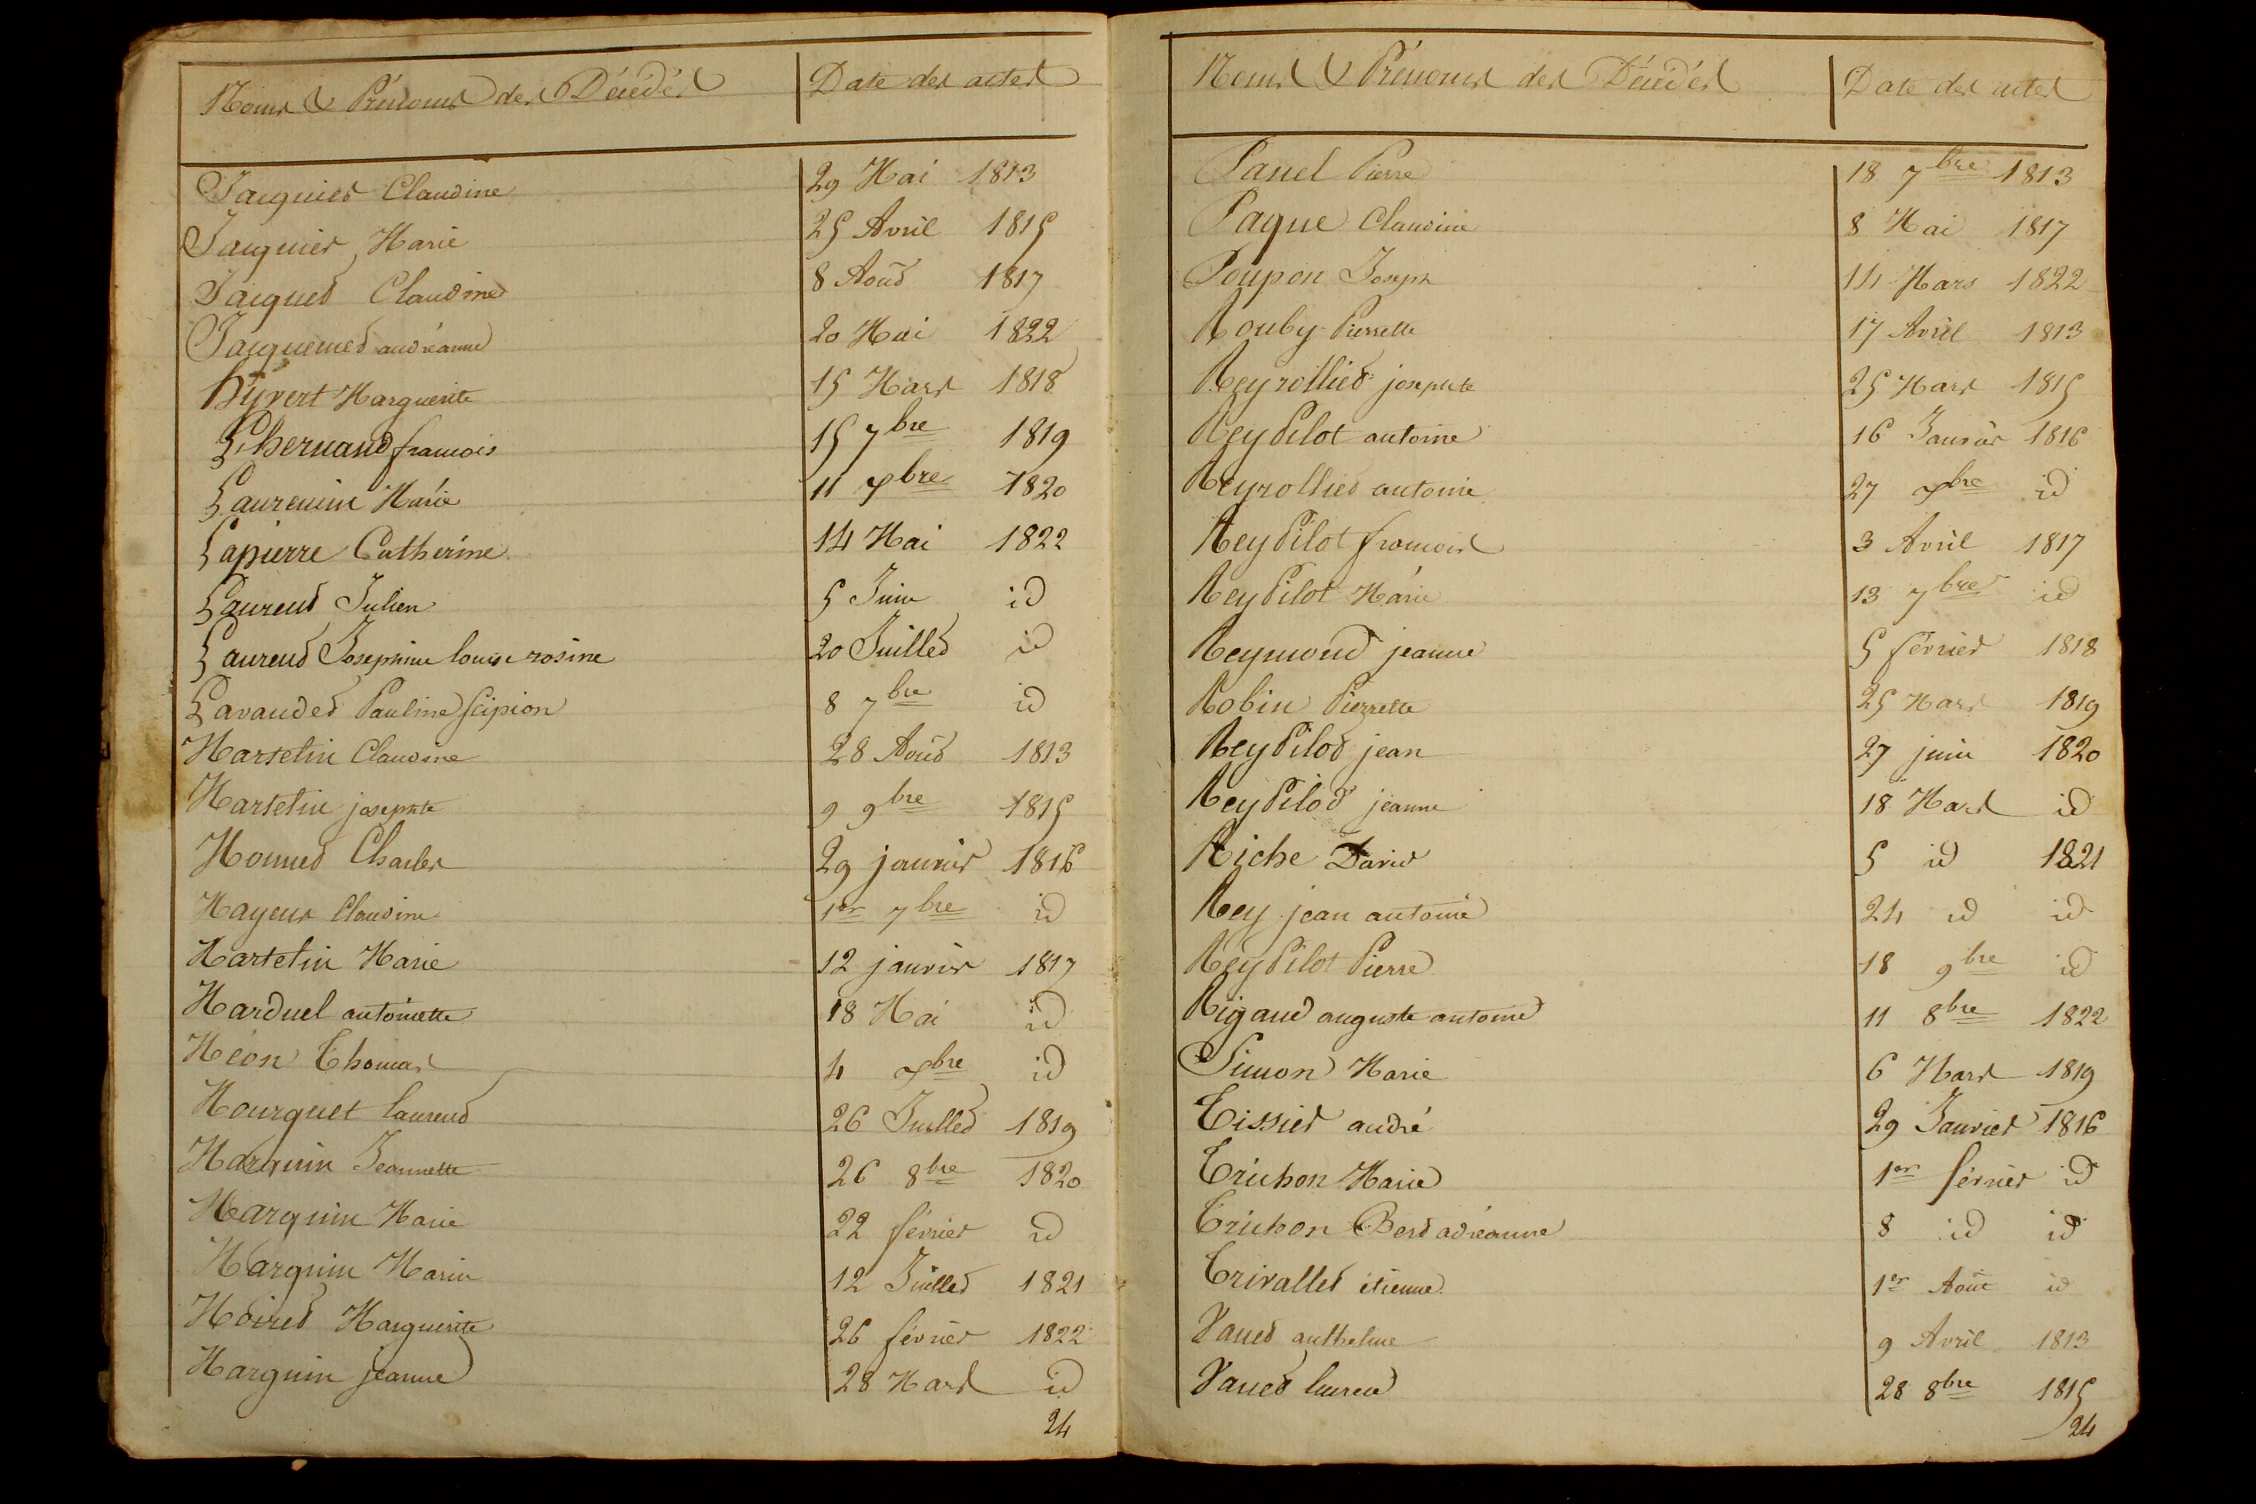 Noms & Prénoms des Décédés Date des actes
Jacquier Claudine 29 Mai 1813
Jacquier Marie 25 Avril 1815
Jacquet Claudine 8 Août 1817
Jacquemet andréanne 20 Mai 1822
hyvert Marguerite 15 Mars 1818
Lhernaud francois 15 7bre 1819
Laurencin Marie 11 xbre 1820
Lapierre Catherine 14 Mai 1822
Laurend Julien 5 Juin id
Laurend Josephine louise rosine 20 Juillet id
Lavaudet Pauline Scipion 8 7bre id
Martelin Claudine 28 Août 1813
Martelin josephte 9 9bre 1815
Monnet Charles 29 janvier 1816
Mayeur Claudine 1er 7bre id
Martelin Marie 12 janvier 1817
Marduel antoinette 18 Mai id
Méon Thomas 4 xbre id
Mourguet laurend 26 Juillet 1819
Marguin Jeannette 26 8bre 1820
Marguin Marie 22 février id
Marguin Marin 12 Juillet 1821
Moiret Marguerite 26 février 1822
Marguin jeanne 28 Mars id
24
Noms & Prénoms des Décédés Date des actes
Panel Pierre 18 7bre 1813
Paque Claudine 8 Mai 1817
Poupon Joseph 14 Mars 1822
Rouby Pierrette 17 Avril 1813
Reyrollier josephte 25 Mars 1815
Rey Pilot antoine 16 Janvier 1816
Reyrollier antoine 27 xbre id
Rey Pilot francois 3 Avril 1817
Rey Pilot Marie 13 7bre id
Reymond jeanne 5 février 1818
Robin Pierrette 25 Mars 1819
Rey Pilot jean 27 juin 1820
Rey Pilot jeanne 18 Mars id
Riche David 5 id 1821
Rey jean antoine 24 id id
Rey Pilot Pierre 18 9bre id
Rigaud auguste antoine 11 8bre 1822
Simon Marie 6 Mars 1819
Tissier andré 29 Janvier 1816
Trichon Marie 1er février id
Trichon Bert adréanne 8 id id
Trivallet étienne 1er Août id
Vanet anthelme 9 Avril 1813
Vanet 28 8bre 1815
24